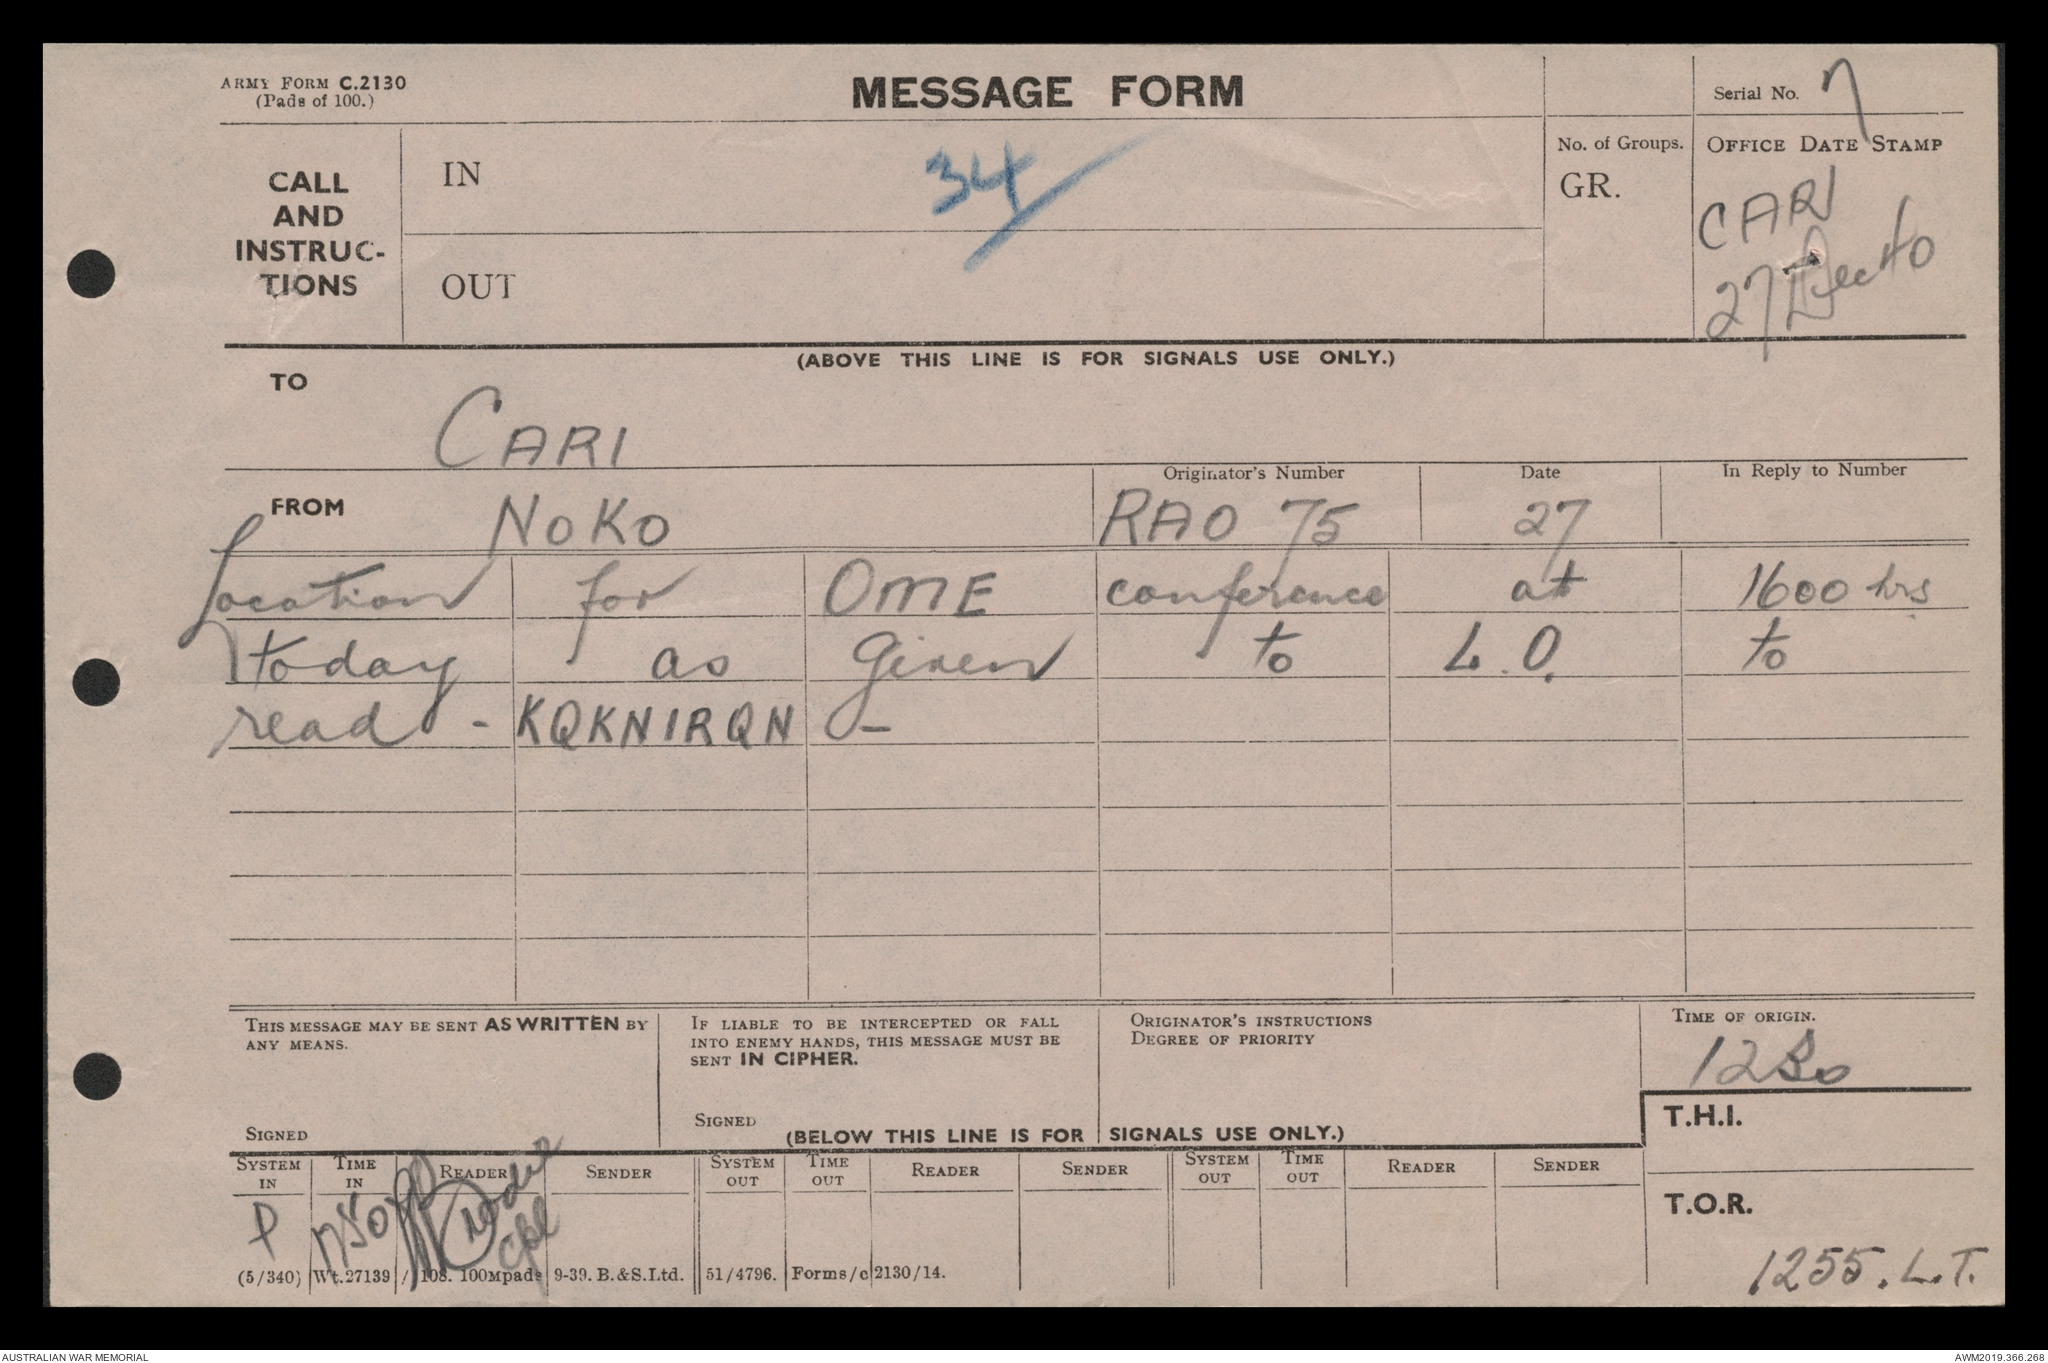 ARMY FORM C.2130
(Pads of 100.)
MESSAGE FORM
Serial No. 7
CALL AND INSTRUC-TIONS
IN
34
OUT
No. of Groups.
GR.
OFFICE DATE STAMP
CARI
27 Dec 40
(ABOVE THIS LINE IS FOR SIGNALS USE ONLY.)
TO
CARI
FROM
NOKO
Originator's Number
RAO 75
Date
27
In Reply to Number
Location for OME conference at 1600 hrs
today as given to L.O. to
read - KQKNIRQN -
THIS MESSAGE MAY BE SENT AS WRITTEN BY
ANY MEANS.
SIGNED
IF LIABLE TO BE INTERCEPTED OR FALL
INTO ENEMY HANDS, THIS MESSAGE MUST BE
SENT IN CIPHER.
SIGNED
ORIGINATOR'S INSTRUCTIONS
DEGREE OF PRIORITY
TIME OF ORIGIN.
(BELOW THIS LINE IS FOR SIGNALS USE ONLY.)
T.H.I.
SYSTEM IN
TIME IN
READER
SENDER
SYSTEM OUT
TIME OUT
READER
SENDER
SYSTEM OUT
TIME OUT
READER
SENDER
P
Cpl
T.O.R.
1255. L.T.
(5/340) Wt.27139/108. 100Mpads 9-39. B.&S.Ltd. 51/4796. Forms/c 2130/14.
AUSTRALIAN WAR MEMORIAL
AWM2019.366.268